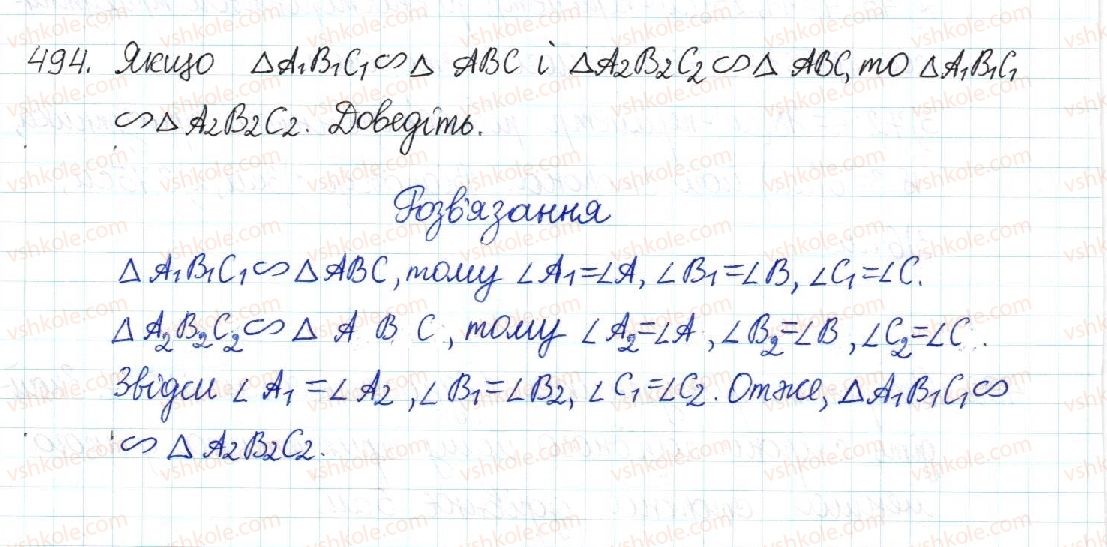 494. Якщо △A₁B₁C₁ ∽ △ ABC і △A₂B₂C₂ ∽ △ ABC, то △A₁B₁C₁
∽ △ A₂B₂C₂. Доведіть.
Розв'язання
△ A₁B₁C₁ ∽ △ ABC, тому ∠A₁=∠A, ∠B₁=∠B, ∠C₁=∠C.
△ A₂B₂C₂ ∽ △ A B C, тому ∠A₂=∠A, ∠B₂=∠B, ∠C₂=∠C.
Звідси ∠A₁=∠A₂, ∠B₁=∠B₂, ∠C₁=∠C₂. Отже, △A₁B₁C₁ ∽
∽ △ A₂B₂C₂.